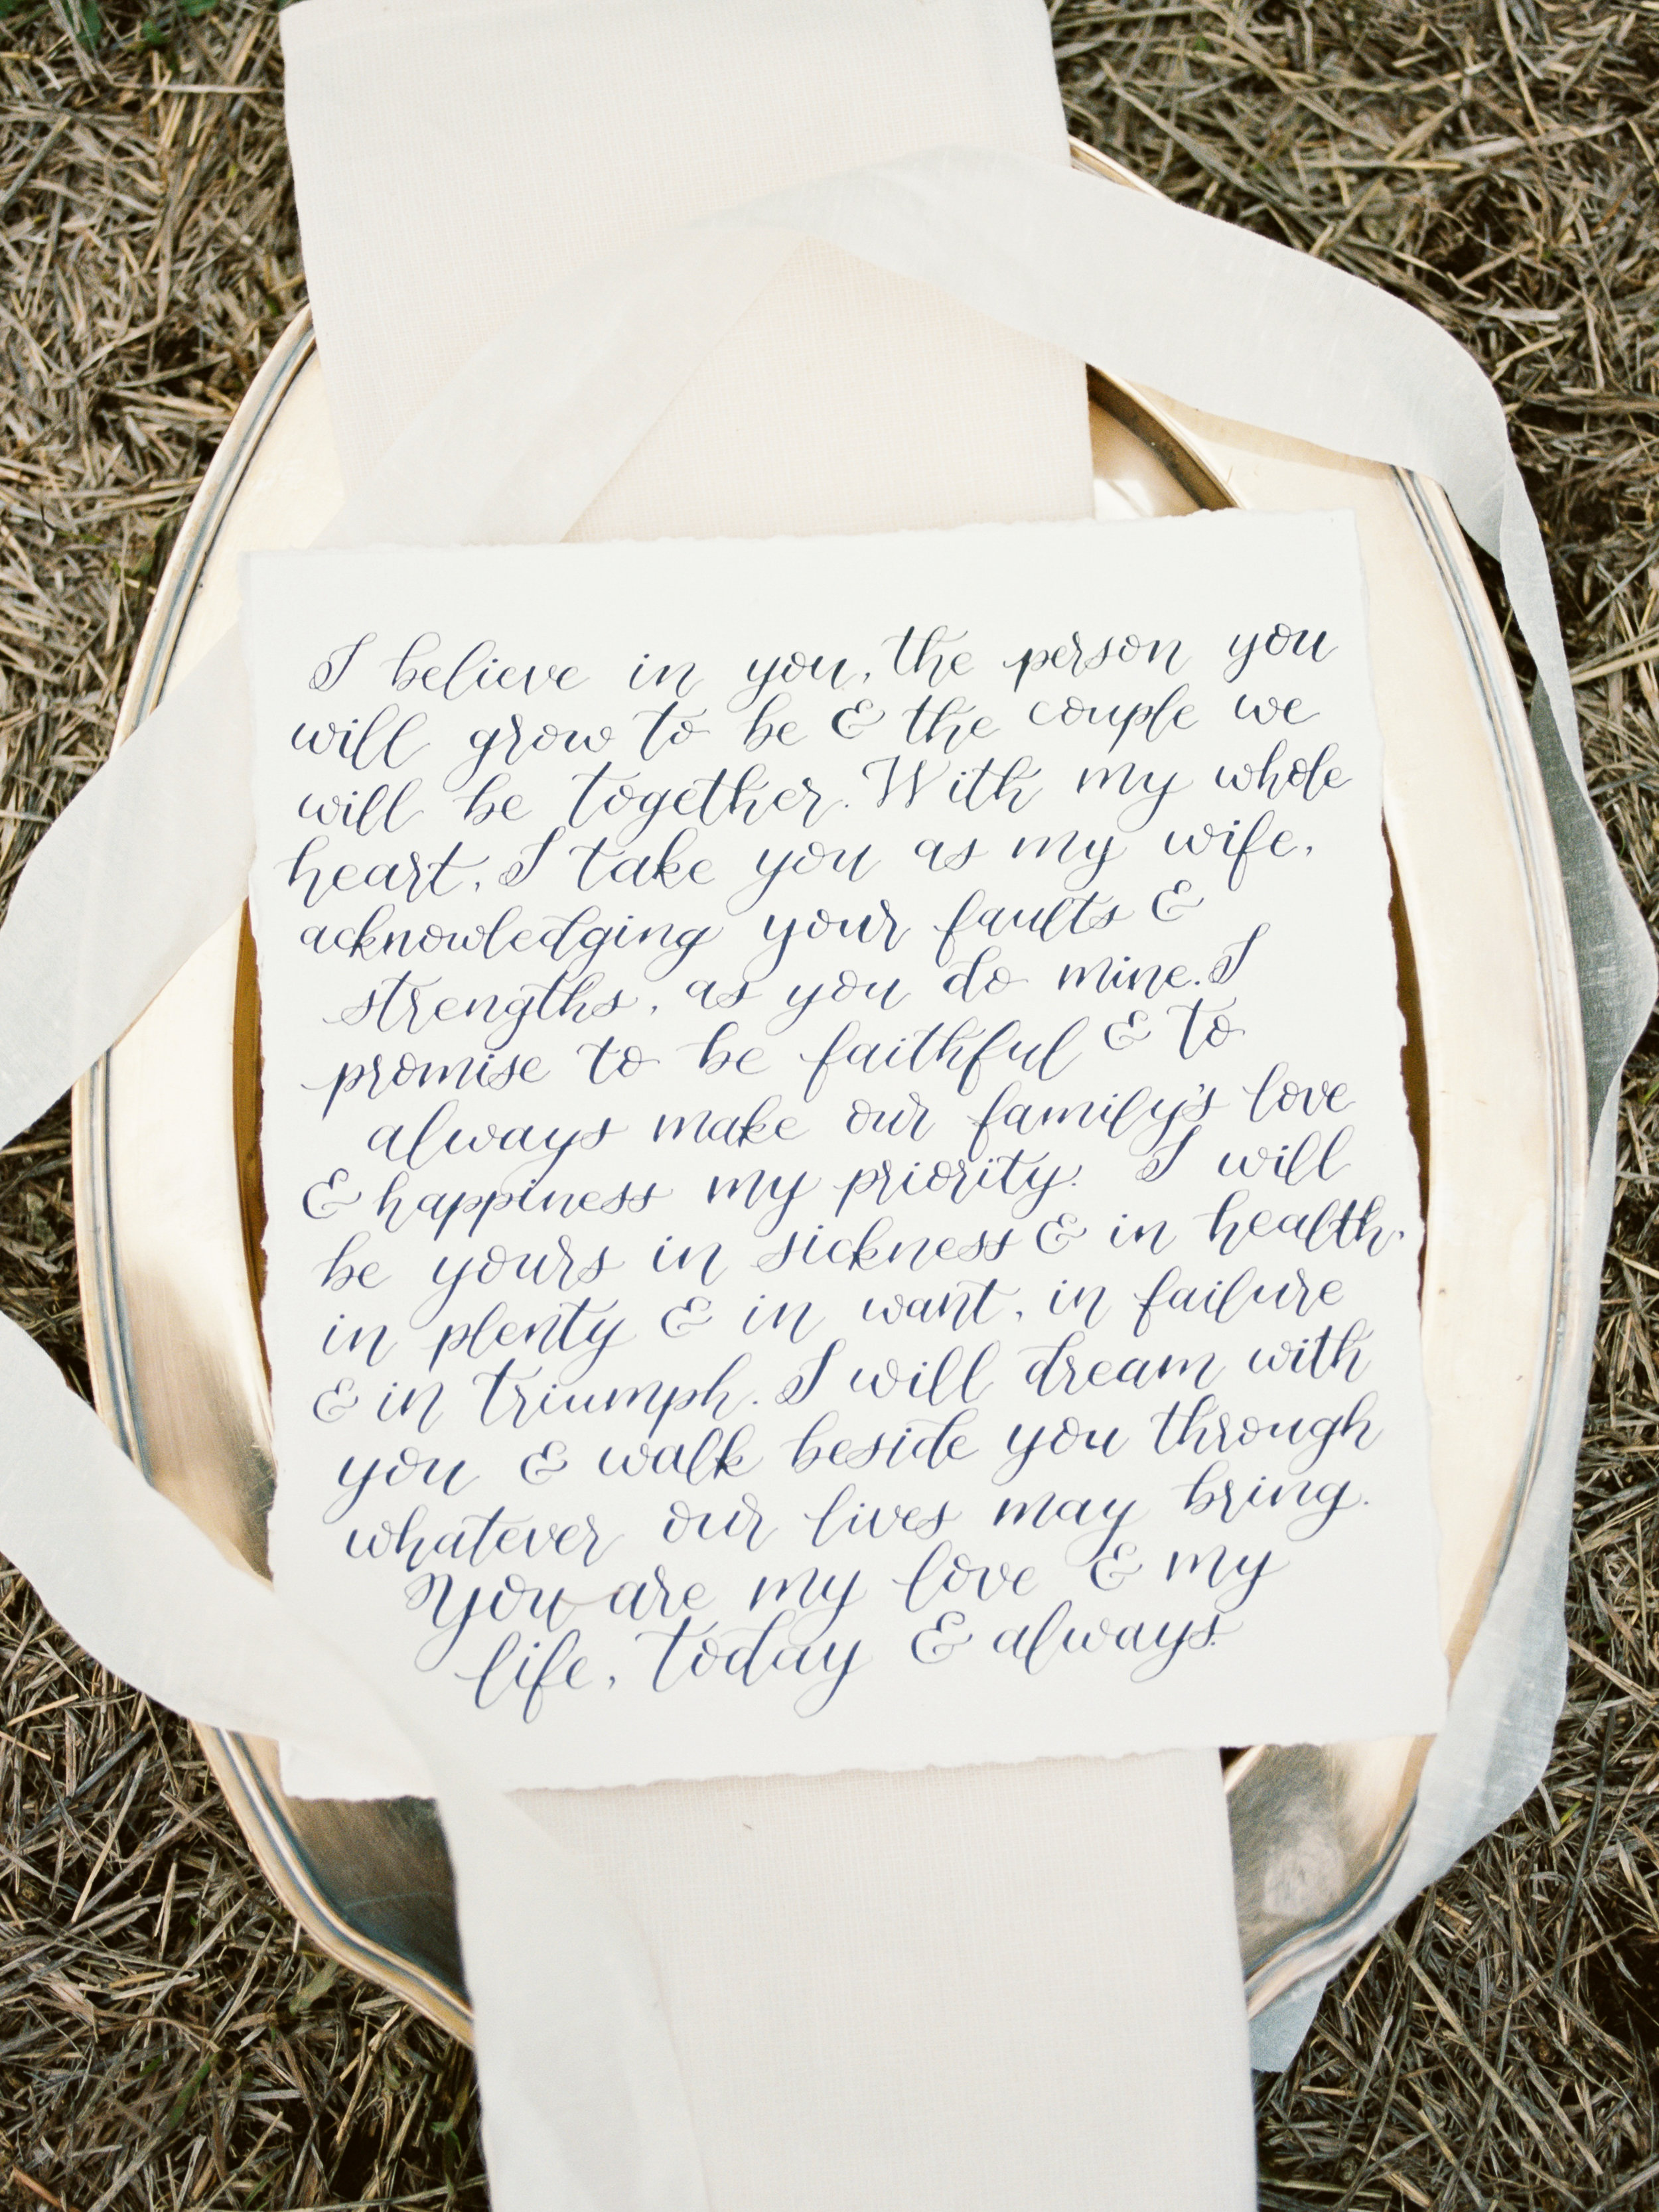 I believe in you, the person you
will grow to be & the couple we
will be together. With my whole
heart, I take you as my wife,
acknowledging your faults &
strengths, as you do mine. I
promise to be faithful & to
always make our family's love
& happiness my priority. I will
be yours in sickness & in health,
in plenty & in want, in failure
& in triumph. I will dream with
you & walk beside you through
whatever our lives may bring.
You are my love & my
life, today & always.